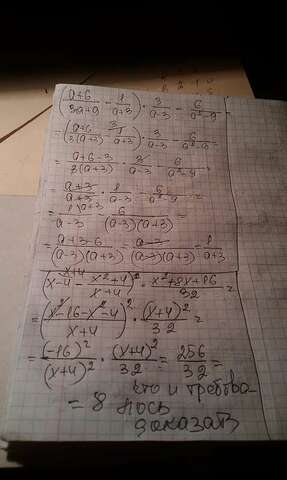 (a+6/3a+9 - 1/a+3) · 3/a-3 - 6/a²-9 =
= (a+6/3(a+3) - ³1/a+3) · 3/a-3 - 6/a²-9 =
= a+6-3/3(a+3) · 3/a-3 - 6/a²-9 =
= a+3/a+3 · 1/a-3 - 6/a²-9 =
= 1/a-3 - 6/(a-3)(a+3) =
= a+3-6/(a-3)(a+3) = a-3/(a-3)(a+3) = 1/a+3
(x-4 - x²+4/x+4)² · x²+8x+16/32 =
= (x²-16-x²-4/x+4)² · (x+4)²/32 =
= (-16)²/(x+4)² · (x+4)²/32 = 256/32 =
= 8 что и требова-
лось
доказать